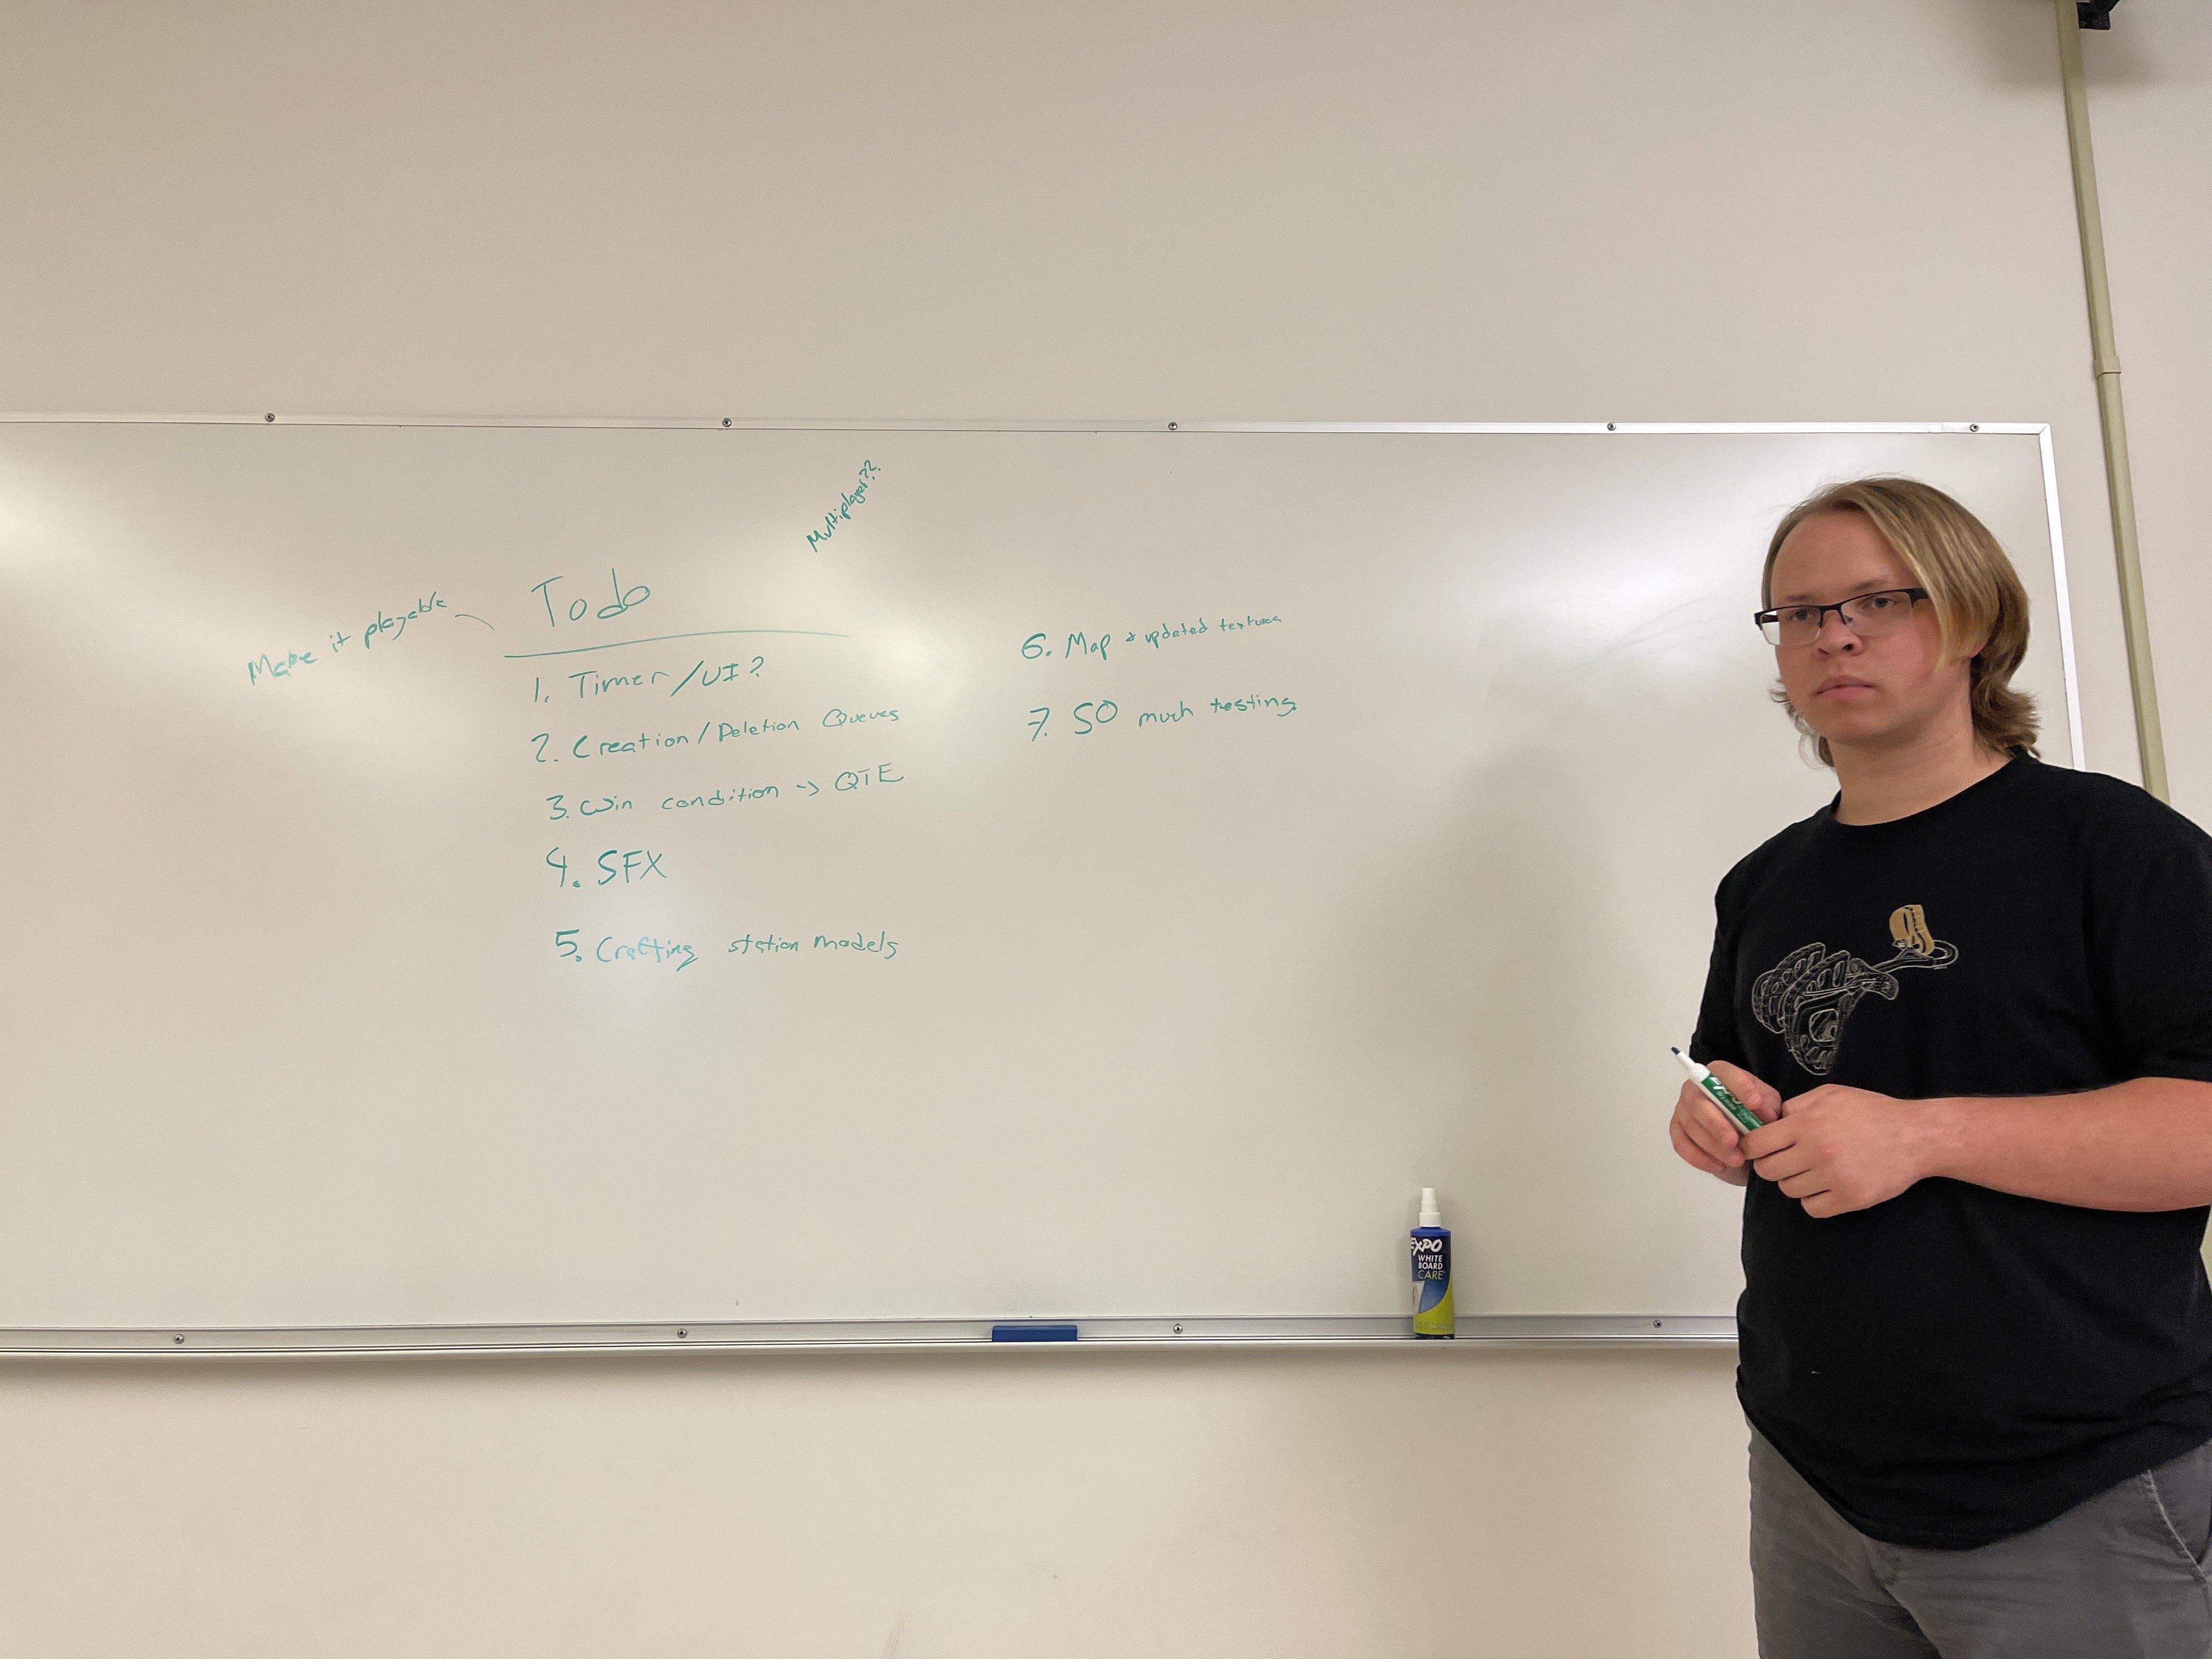 Multiplayer??
Make it playable
Todo
1. Timer/UI?
2. Creation/Deletion Queues
3. Win condition -> QTE
4. SFX
5. Crafting station models
6. Map & updated textures
7. SO much testing
EXPO
WHITE
BOARD
CARE